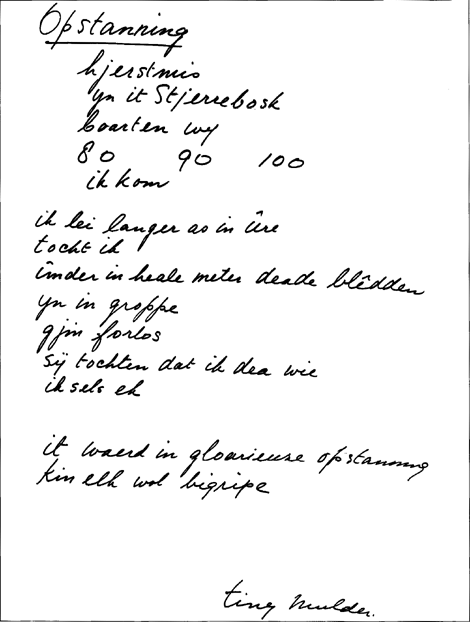 Opstanning
hjerstmis
yn it Stjerrebosk
boarten wy
80 90 100
ik kom
ik lei langer as in ûre
tocht ik
ûnder in heale meter deade blêdden
yn in groppe
gjin forlos
sij tochten dat ik dea wie
ik sels ek
it waerd in gloarieuze opstanning
kin elk wol bigripe
tiny mulder.